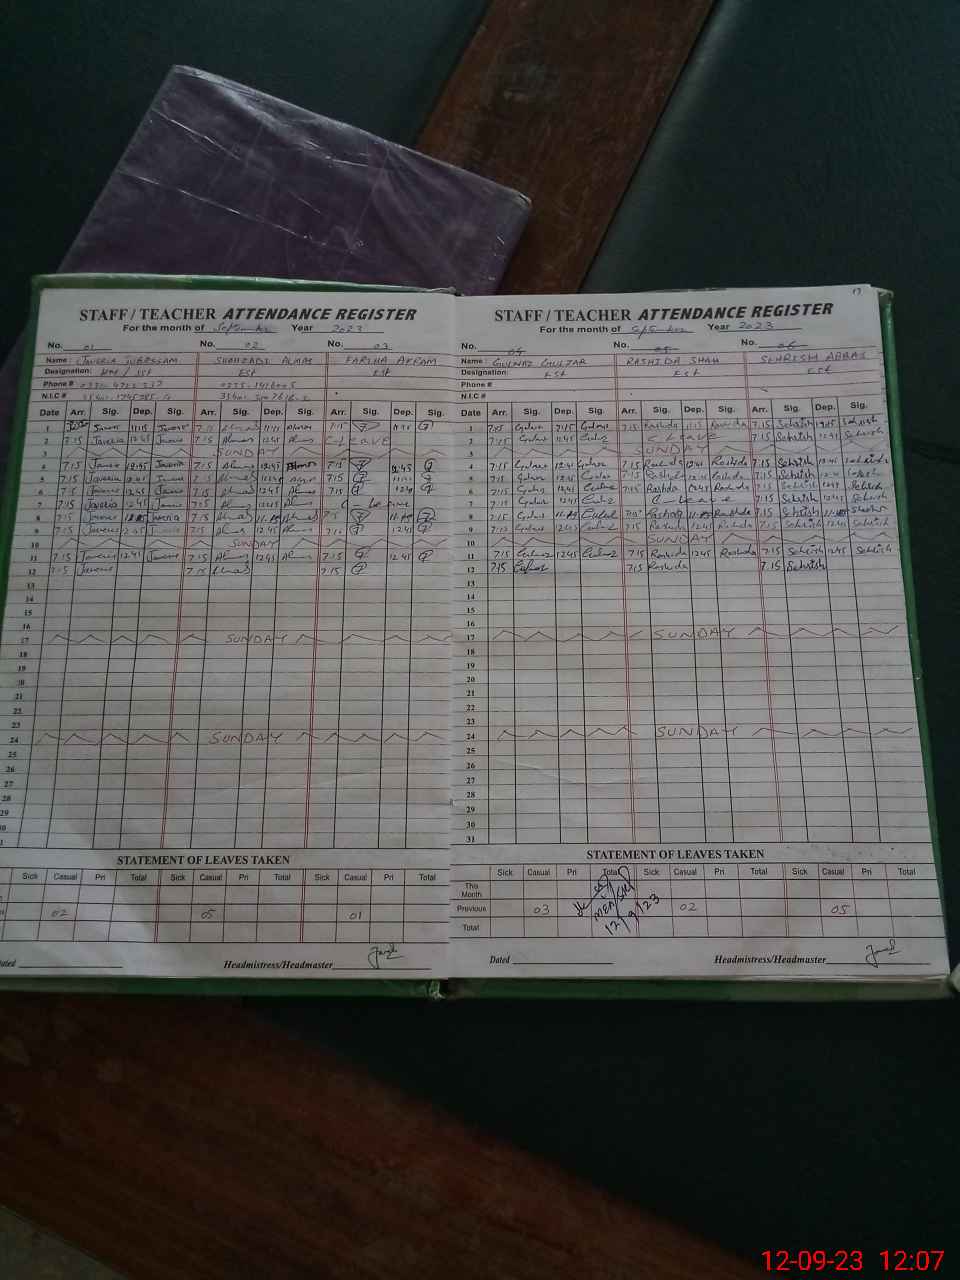 13
STAFF / TEACHER ATTENDANCE REGISTER
For the month of September Year 2023
No. 01 No. 02 No. 03
Name: JAVERIA SHAHZADI ALMAS FARIHA AKRAM
Designation: HM / EST EST
Phone #
N.I.C #
Date Arr. Sig. Dep. Sig. Arr. Sig. Dep. Sig. Arr. Sig. Dep. Sig.
1 11:15 7.15 Almas 11:15 Almas 7.15
2 7.15 Javeria 12.45 Javeria 7.15 Almas 12.45 Almas C. Leave
3 SUNDAY
4 7.15 Javeria 12.45 Javeria 7.15 Almas 12.45 Almas 7.15 12.45
5 7.15 Javeria 12.45 Javeria 7.15 Almas 7.15
6 7.15 Javeria 12.45 Javeria 7.15 Almas 12.45 Almas 7.15
7 7.15 Javeria 12.45 Javeria 7.15 Almas 12.45 Almas
8 7.15 Javeria Javeria 7.15 Almas Almas
9 7.15 Javeria 12.45 Javeria 7.15 Almas 12.45 Almas 12.45
10 SUNDAY
11 7.15 Javeria 12.45 Javeria 7.15 Almas 12.45 Almas 7.15 12.45
12 7.15 Javeria 7.15 Almas 7.15
13
14
15
16
17 SUNDAY
18
19
20
21
22
23
24 SUNDAY
25
26
27
28
29
STATEMENT OF LEAVES TAKEN
Sick Casual Pri Total Sick Casual Pri Total Sick Casual Pri Total
02 05 01
Dated Headmistress/Headmaster
STAFF / TEACHER ATTENDANCE REGISTER
For the month of September Year 2023
No. 04 No. 05 No. 06
Name: GULNAZ GULZAR RASHIDA SHAH SEHRISH ABBAS
Designation: EST EST EST
Phone #
N.I.C #
Date Arr. Sig. Dep. Sig. Arr. Sig. Dep. Sig. Arr. Sig. Dep. Sig.
1 7.15 Gulnaz 7.15 Gulnaz 7.15 Rashida 11:15 Rashida 7.15 Sehrish Sehrish
2 7.15 Gulnaz 12.45 Gulnaz C. Leave 7.15 Sehrish 12.45 Sehrish
3 SUNDAY
4 7.15 Gulnaz 12.45 Gulnaz 7.15 Rashida 12.45 Rashida 7.15 Sehrish 12.45 Sehrish
5 7.15 Gulnaz 12.45 Gulnaz 7.15 Rashida 12.45 Rashida 7.15 Sehrish 12.45 Sehrish
6 7.15 Gulnaz 12.45 Gulnaz 7.15 Rashida 12.45 Rashida 7.15 Sehrish 12.45 Sehrish
7 7.15 Gulnaz 12.45 Gulnaz C. Leave 7.15 Sehrish 12.45 Sehrish
8 7.15 Gulnaz Gulnaz Rashida Rashida 7.15 Sehrish Sehrish
9 7.15 Gulnaz 12.45 Gulnaz 7.15 Rashida 12.45 Rashida 7.15 Sehrish 12.45 Sehrish
10 SUNDAY
11 7.15 Gulnaz 12.45 Gulnaz 7.15 Rashida 12.45 Rashida 7.15 Sehrish 12.45 Sehrish
12 7.15 Gulnaz 7.15 Rashida 7.15 Sehrish
13
14
15
16
17 SUNDAY
18
19
20
21
22
23
24 SUNDAY
25
26
27
28
29
30
31
STATEMENT OF LEAVES TAKEN
Sick Casual Pri Total Sick Casual Pri Total Sick Casual Pri Total
This Month
Previous 03 02 05
Total
12/9/23
Dated Headmistress/Headmaster
12-09-23 12:07